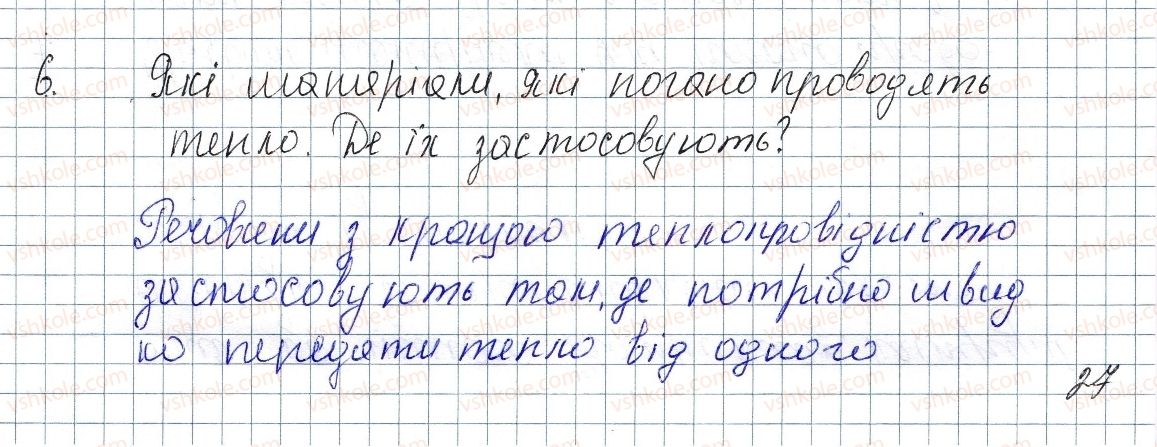 6. Які матеріали, які погано проводять
тепло. Де їх застосовують?
Речовини з кращою теплопровідністю
застосовують там, де потрібно швид
ко передати тепло від одного
27
vshkole.com